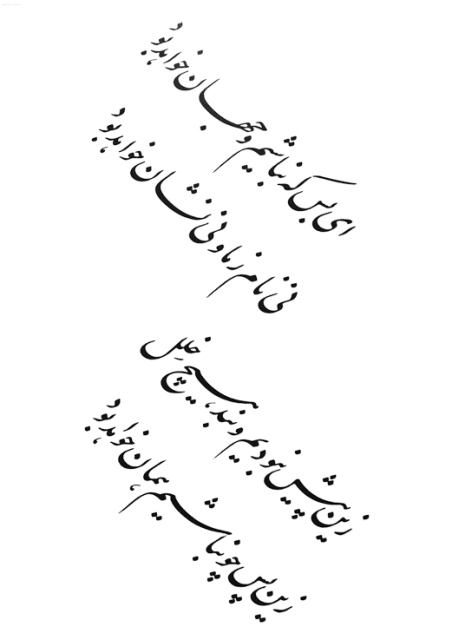 ای بس که نباشیم و جهان خواهد بود
نی نام ز ما و نی نشان خواهد بود
زین پیش نبودیم و نبد هیچ خلل
زین پس چو نباشیم همان خواهد بود